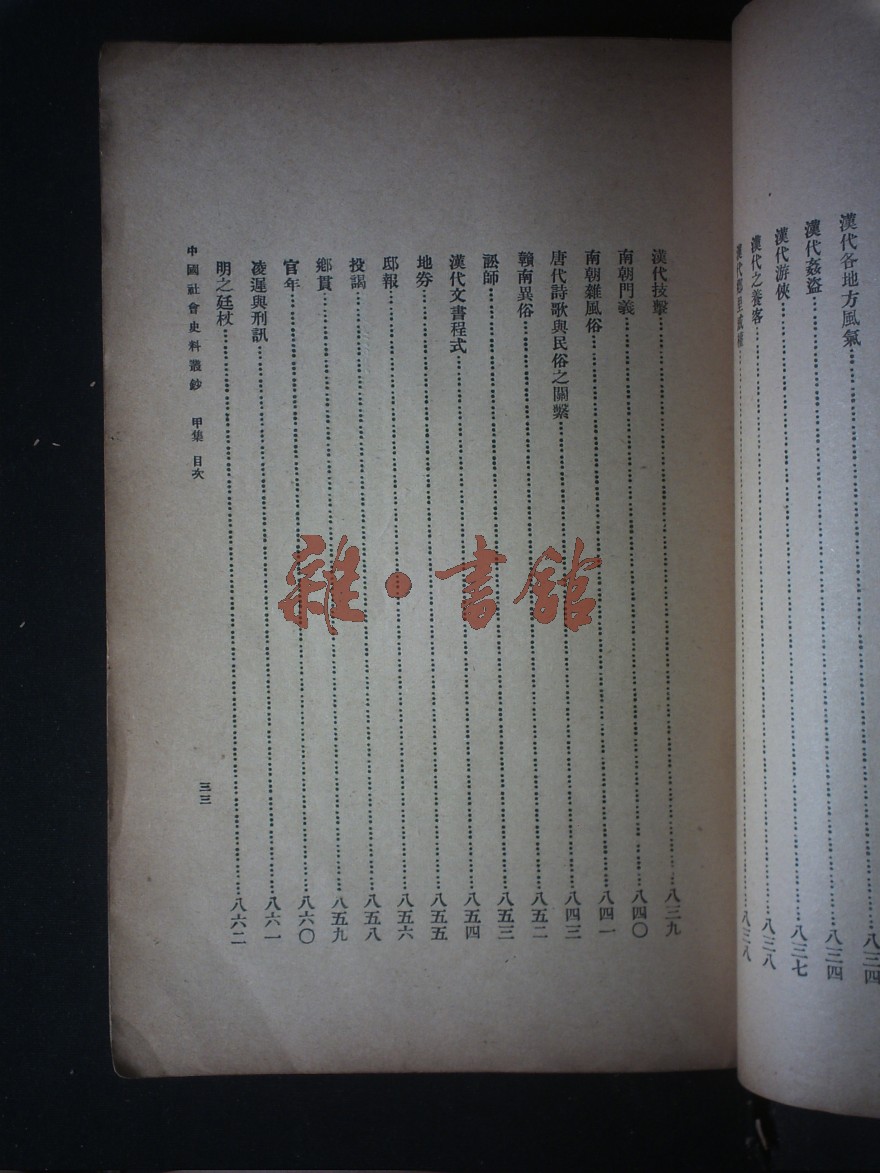 漢代各地方風氣……八三四
漢代姦盜……八三四
漢代游俠……八三七
漢代之養客……八三八
漢代鄉里……八三八
漢代技擊……八三九
南朝門義……八四〇
南朝雜風俗……八四一
唐代詩歌與民俗之關繫……八四三
贛南異俗……八五二
訟師……八五三
漢代文書程式……八五四
地券……八五五
邸報……八五六
投謁……八五八
鄉貫……八五九
官年……八六〇
凌遲與刑訊……八六一
明之廷杖……八六二
中國社會史料叢鈔 甲集 目次
三三
雜·書館